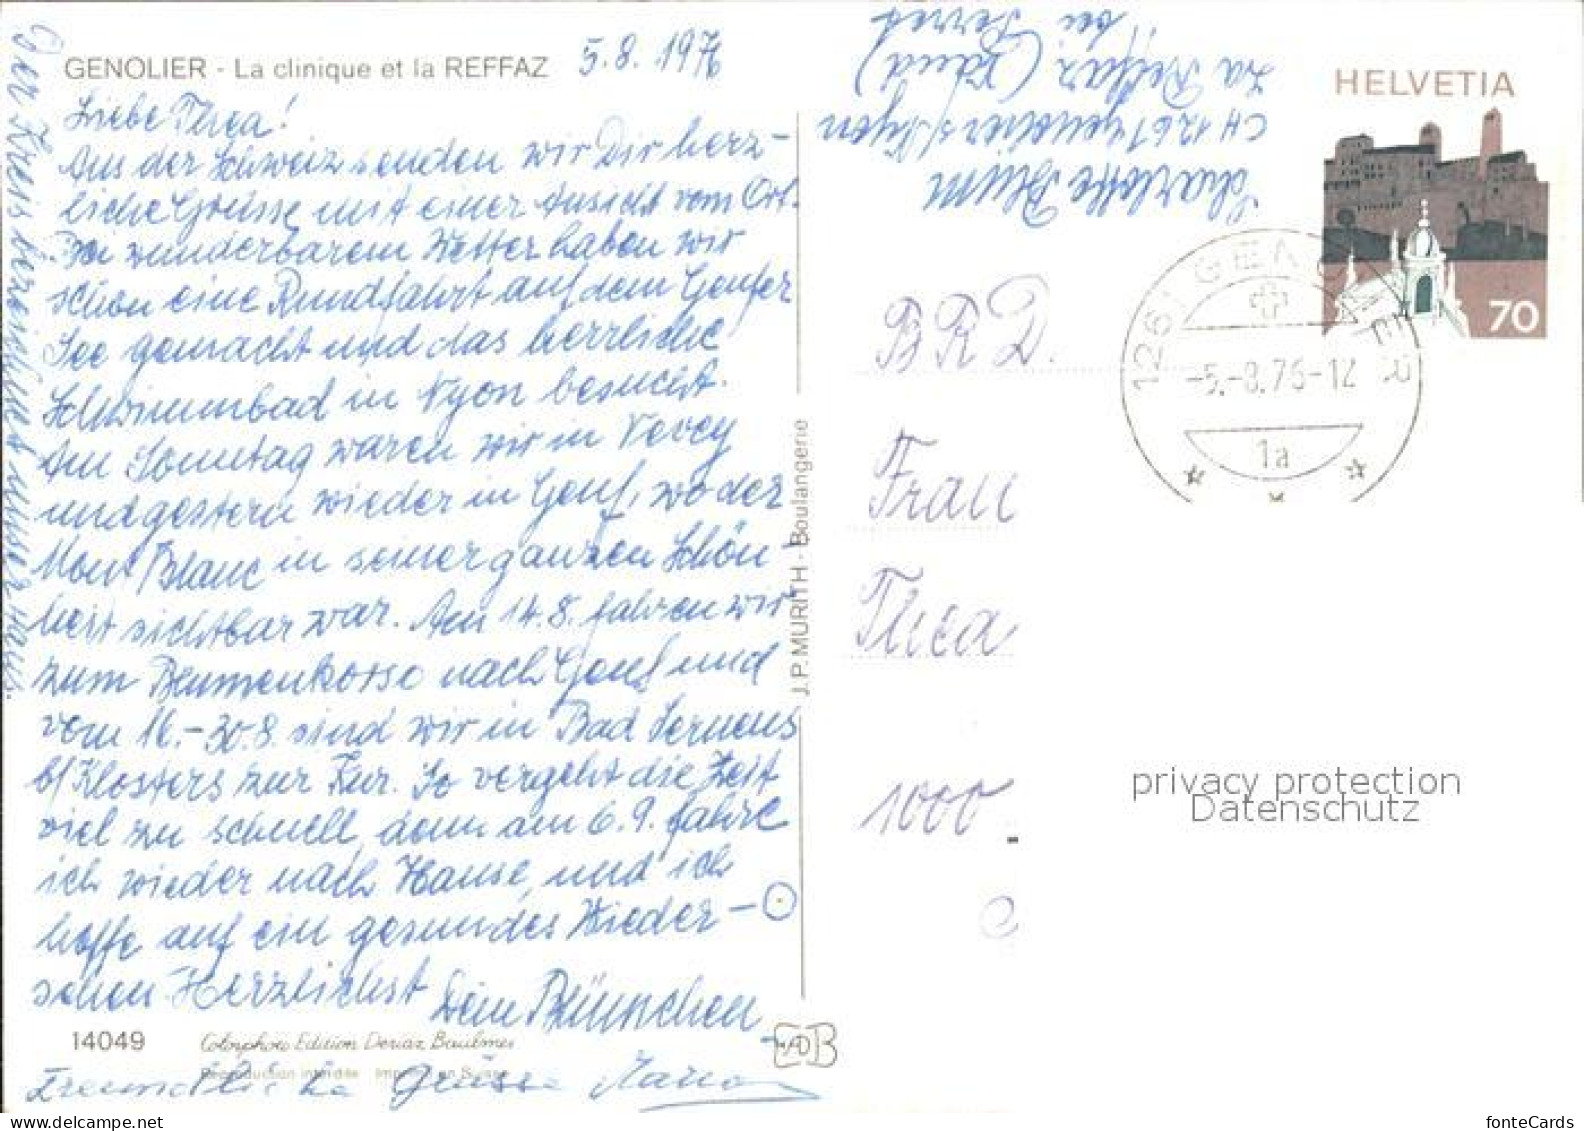 GENOLIER - La clinique et la REFFAZ
5.8.1976
Liebe Thea!
Aus der Schweiz senden wir Dir herz-
liche Grüsse mit einer Ansicht vom Ort.
Bei wunderbarem Wetter haben wir
schon eine Rundfahrt auf dem Genfer
See gemacht und das herrliche
Schwimmbad in Nyon besucht.
Am Sonntag waren wir in Vevey
und gestern wieder in Genf, wo der
Mont Blanc in seiner ganzen Schön-
heit sichtbar war. Am 14.8. fahren wir
zum Blumenkorso nach Genf und
vom 16.-30.8. sind wir in Bad Serneus
b/Klosters zur Kur. So vergeht die Zeit
viel zu schnell, denn am 6.9. fahre
ich wieder nach Hause, und ich
hoffe auf ein gesundes Wieder-
sehen. Herzlichst Dein Blümchen
Freundliche Grüsse
Der Kreis bezeichnet unser Haus.
14049
Colorphoto Edition Deriaz Baulmes
Reproduction interdite Imprimé en Suisse
J.P. MURITH - Boulangerie
Charlotte Blüm
CH 1261 Genolier s/Nyon
La Reffaz (Vaud)
bei Perret
HELVETIA
70
1261 GENOLIER
-5.-8.76-12
1a
BRD.
Frau
Thea
1000
privacy protection
Datenschutz
fonteCards